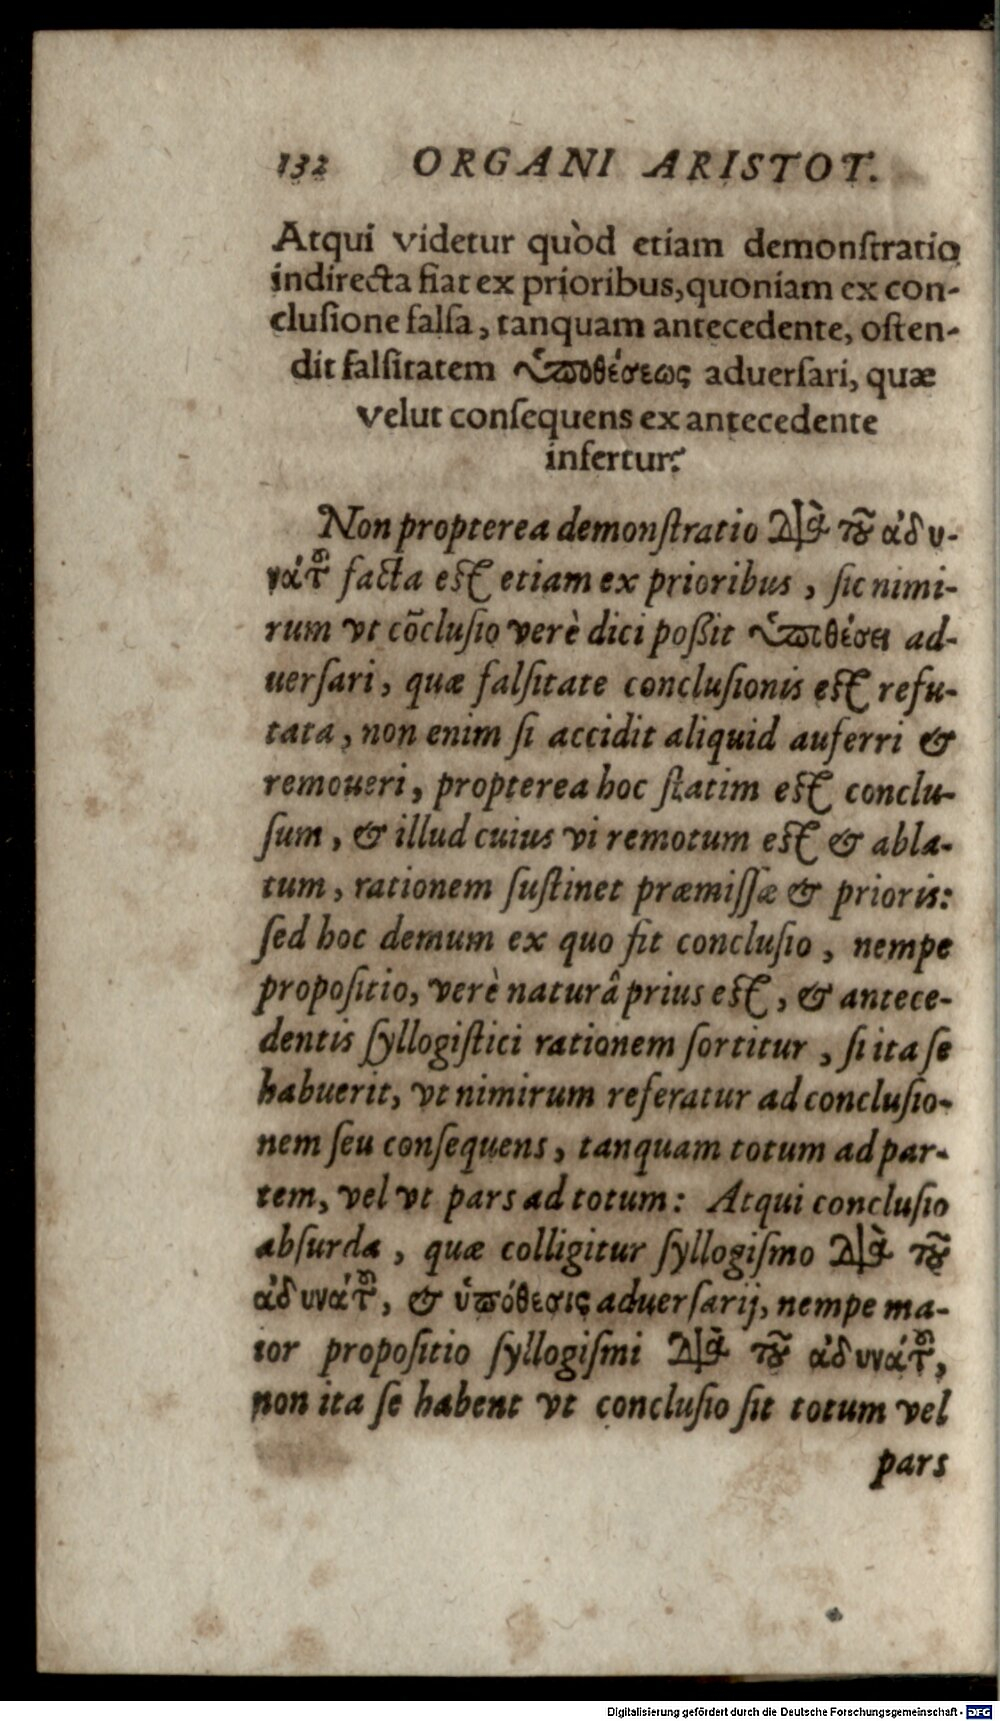 132 ORGANI ARISTOT.
Atqui videtur quòd etiam demonſtratio
indirecta fiat ex prioribus, quoniam ex con-
cluſione falſa, tanquam antecedente, oſten-
dit falſitatem ὑποθέσεως aduerſari, quæ
velut conſequens ex antecedente
infertur?
Non propterea demonſtratio διὰ τοῦ ἀδυ-
νάτου facta eſt etiam ex prioribus, ſic nimi-
rum vt cõcluſio verè dici poßit ὑποθέσει ad-
uerſari, quæ falſitate concluſionis eſt refu-
tata, non enim ſi accidit aliquid auferri &
remoueri, propterea hoc ſtatim eſt conclu-
ſum, & illud cuius vi remotum eſt & abla-
tum, rationem ſuſtinet præmiſſæ & prioris:
ſed hoc demum ex quo fit concluſio, nempe
propoſitio, verè naturâ prius eſt, & antece-
dentis ſyllogiſtici rationem ſortitur, ſi ita ſe
habuerit, vt nimirum referatur ad concluſio-
nem ſeu conſequens, tanquam totum ad par-
tem, vel vt pars ad totum: Atqui concluſio
abſurda, quæ colligitur ſyllogiſmo διὰ τοῦ
ἀδυνάτου, & ὑπόθεσις aduerſarij, nempe ma-
ior propoſitio ſyllogiſmi διὰ τοῦ ἀδυνάτου,
non ita ſe habent vt concluſio ſit totum vel
pars
Digitalisierung gefördert durch die Deutsche Forschungsgemeinschaft - DFG